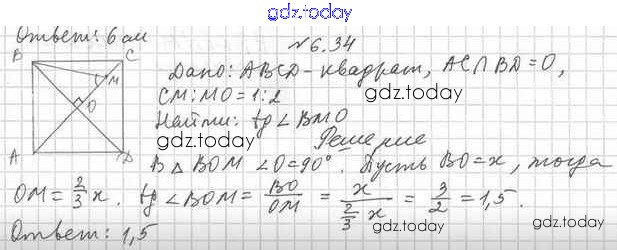 gdz.today
Ответ: 6 см
№6.34
B C
M
O
A D
Дано: ABCD - квадрат, AC∩BD=O,
CM:MO=1:2
gdz.today
Найти: tg∠BMO
Решение
В △ BOM ∠O=90°. Пусть BO=x, тогда
OM = 2/3 x. tg ∠BOM = BO/OM = x/(2/3 x) = 3/2 = 1,5.
Ответ: 1,5
gdz.today
gdz.today